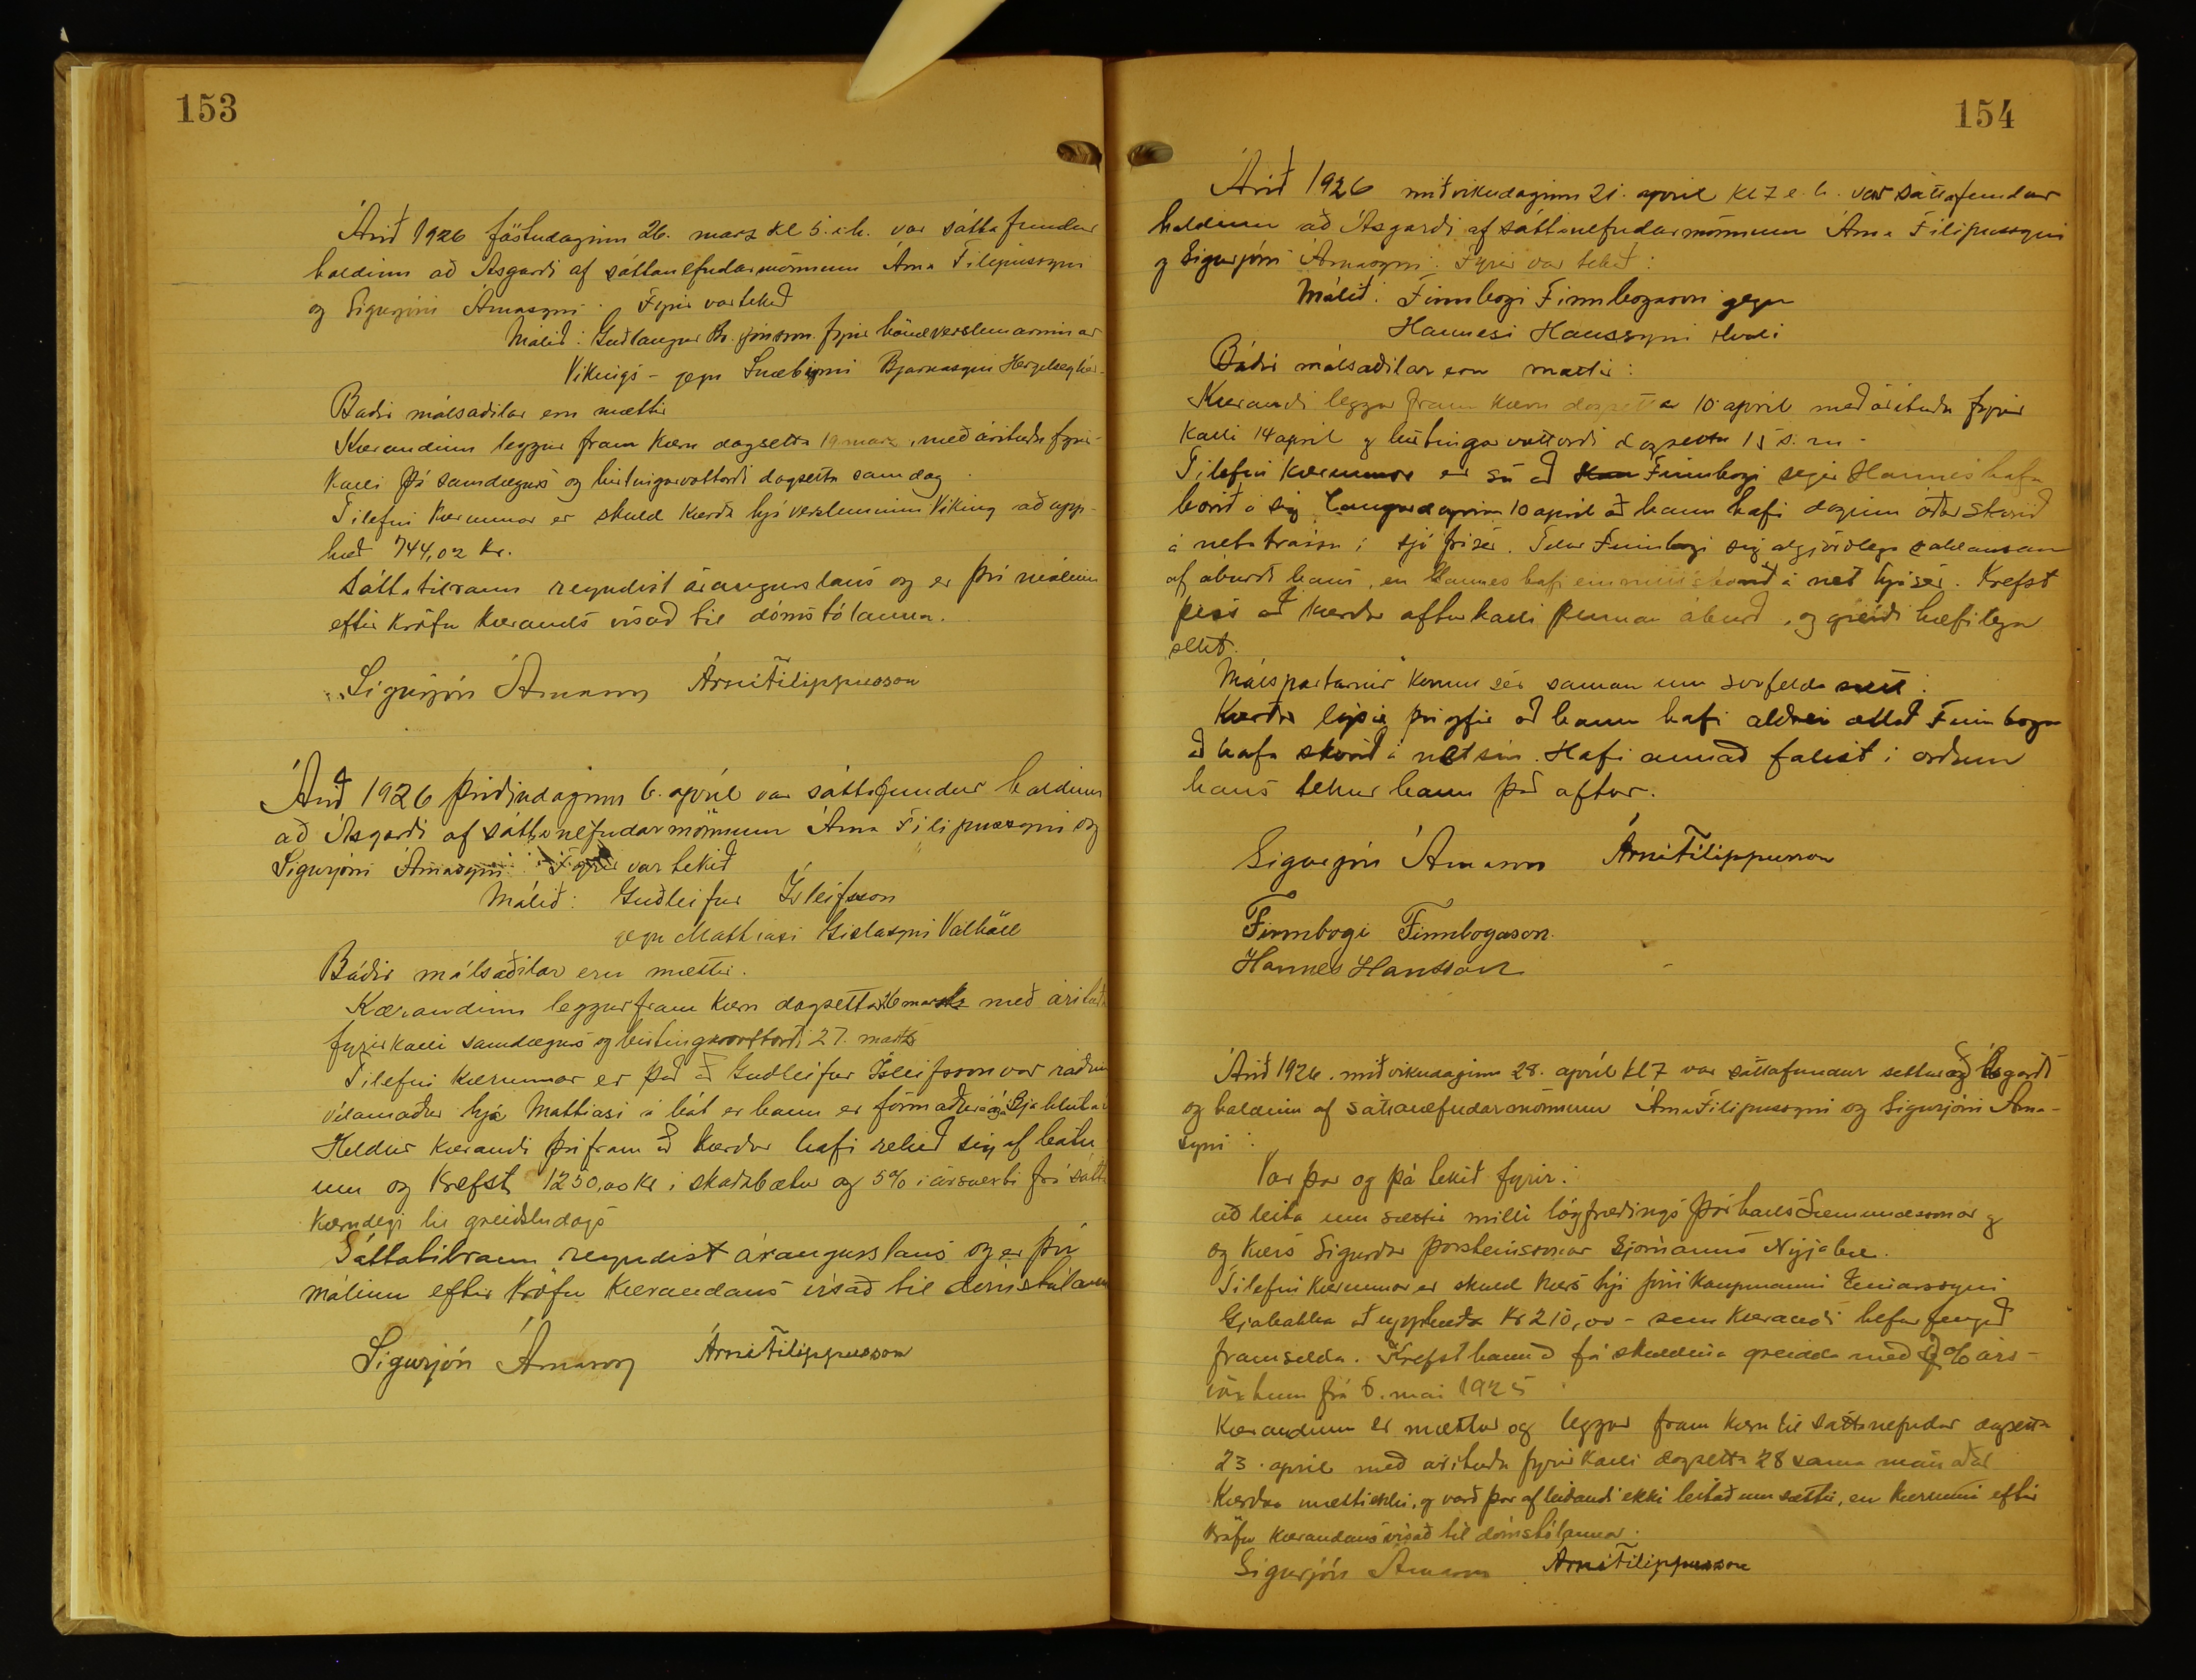 153
Árið 1926 föstudaginn 26. marz kl 5. e.h. var sáttafundur
haldinn að Ásgarði af sáttanefndarmönnum Árna Filipussyni
og Sigurjóni Árnasyni. Fyrir var tekið
Málið: Guðlaugur Br. Jónsson fyrir hönd verslunarinnar
Vikings - gegn Snæbirni Bjarnasyni Hergilsey hér.
Baðir málsaðilar eru mættir
Kærandinn leggur fram kæru dagsetta 19. marz, með árituðu fyrir-
kalli þá samdægurs og birtingarvottorði dagsettu samdag
Tilefni kærunnar er skuld kærða hjá versluninni Viking að upp-
hæð 744,02 kr.
Sáttatilraun reyndist árangurslaus og er því málinu
eftir kröfu kærands vísað til dómstólanna.
Sigurjón Árnason Árni Filippusson
Árið 1926 þriðjudaginn 6. apríl var sáttafundur haldinn
að Ásgarði af sáttanefndarmönnum Árna Filipussyni og
Sigurjóni Árnasyni. Fyrir var tekið
Málið: Guðleifur Ísleifsson
gegn Matthíasi Gislasyni Valhöll
Báðir málsaðilar eru mættir.
Kærandinn leggur fram kæru dagsetta 26 marz með árituðu
fyrirkalli samdægurs og birtingarvottorði 27. marz
Tilefni kærunnar er það að Guðleifur Ísleifsson var ráðinn
vélamaður hjá Mattiasi á bát er hann er formaður á
Heldur kærandi því fram að kærður hafi rekið sig af bátn
um og krefst 1250,00 kr i skaðabætur og 5% i ársvexti frá sátta
kærudegi til greiðsludags
Sáttatilraun reyndist árangurslaus og er því
málinu eftir kröfu kærandans vísað til dómstólanna
Sigurjón Árnason Árni Filippusson
154
Árið 1926 miðvikudaginn 21. april kl 7 e.h. var sáttafundur
haldinn að Ásgarði af sáttanefndarmönnum Árna Filipussyni
og Sigurjóni Árnasyni. Fyrir var tekið:
Málið: Finnbogi Finnbogason gegn
Hannesi Hanssyni Hvoli
Báðir málsaðilar eru mættir:
Kærandi leggur fram kæru dagsetta 10 april með árituðu fyrir
kalli 14 april og birtingarvottorði dagsettu 15 s.m.
Tilefni kærunnar er sú að Finnbogi segir Hannes hafa
borið á sig Laugardaginn 10 april að hann hafi daginn áður skorið
á netatrássu i sjó frá sér. Telur Finnbogi sig algjörlega saklausan
af áburði hans, en Hannes hafi einmitt skorið á net hjá sér. Krefst
þess að kærður afturkalli þennan áburð, og greiði hæfilega
sekt.
Málspartarnir komu sér saman um svofelda sætt:
Kærður lýsir því yfir að hann hafi aldrei ætlað Finnboga
að hafa skorið á net sin. Hafi annað falist i orðum
hans tekur hann það aftur.
Sigurjón Árnason Árni Filippusson
Finnbogi Finnbogason.
Hannes Hansson
Árið 1926. miðvikudaginn 28. apríl kl 7 var sáttafundur settur að Ásgarði
og haldinn af sáttanefndarmönnum Árna Filipussyni og Sigurjóni Árna-
syni:
Var þar og þá tekið fyrir:
að leita um sættir milli lögfræðings Þórhalls Sæmundssonar og
og kærðs Sigurðar Þorsteinssonar Sjómanns Nýjabæ.
Tilefni kærunnar er skuld kærðs hjá Jóni kaupmanni Einarssyni
Gjábakka að upphæð kr 210,00 - sem kærandi hefur fengið
framselda. Krefst hann að fá skuldina greidda með % árs-
vöxtum frá 6. mai 1925
Kærandinn er mættur og leggur fram kæru til sáttanefndar dagsetta
23. april með árituðu fyrirkalli dagsettu 28 sama mánaðar
Kærður mætti ekki, og varð þar af leiðandi ekki leitað um sættir, en kærunni eftir
kröfu kærandans vísað til dómstólanna.
Sigurjón Árnason Árni Filippusson